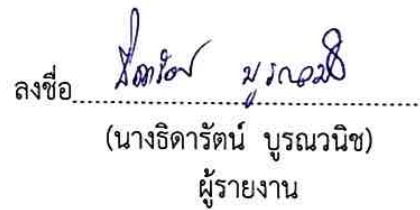 ลงชื่อ ธิดารัตน์ บูรณวนิช
(นางธิดารัตน์ บูรณวนิช)
ผู้รายงาน